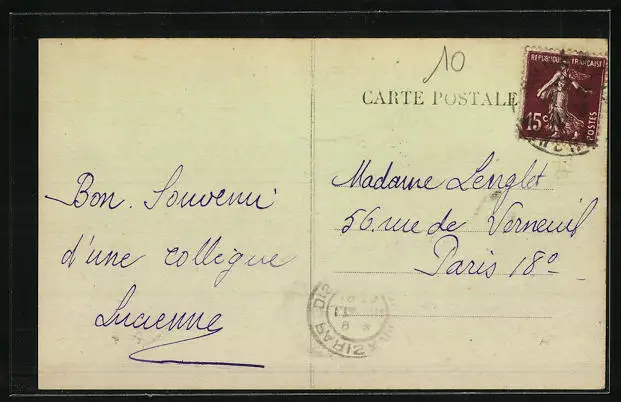 10
CARTE POSTALE
REPUBLIQUE FRANÇAISE
15c
POSTES
Bon Souvenir
d'une collègue
Lucienne
Madame Lenglet
56 rue de Verneuil
Paris 18e
PARIS